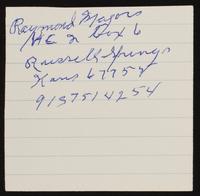 Raymond Majors
HC 2 Box 6
Russell Springs
Kans 67755
9137514254